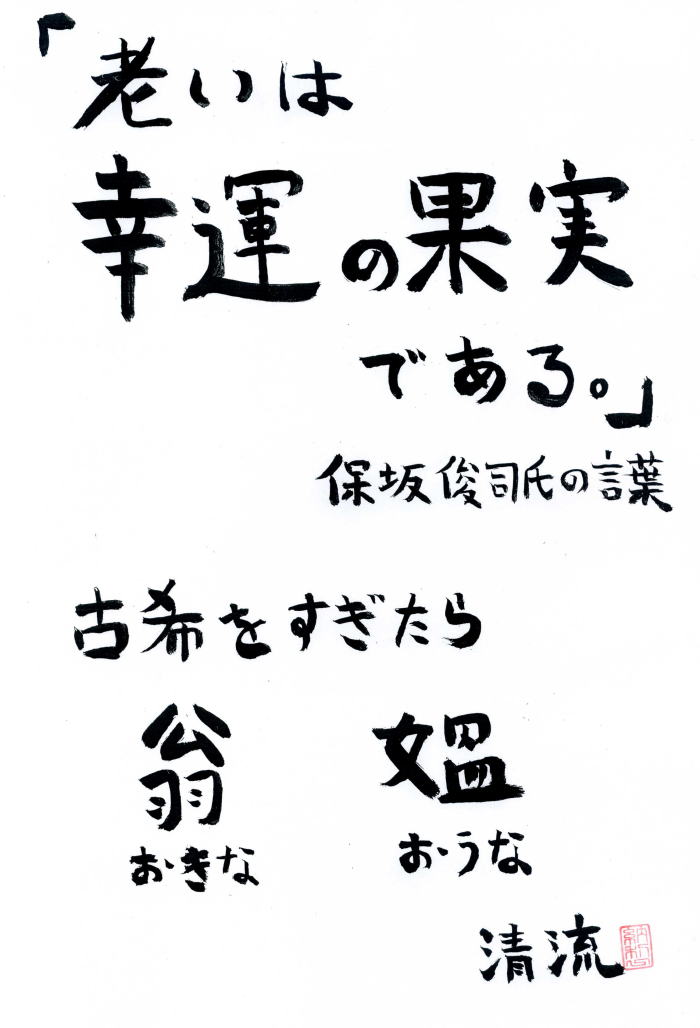 「老いは
幸運の果実
である。」
保坂俊司氏の言葉
古希をすぎたら
翁 媼
おきな おうな
清流